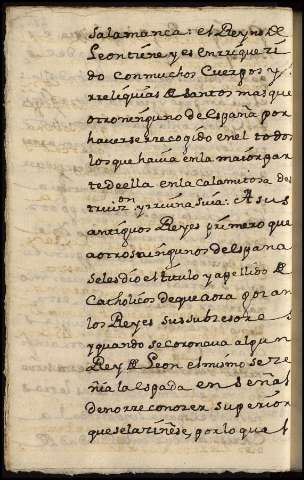 Salamanca: el Reyno de
Leon tiene y es enrriqueri
do con muchos Cuerpos y
rreliquias de santos mas que
otro ninguno de España por
haverse rrecogido en el todos
los que havia en la maior par
te de ella en la calamitosa des
truizon y rruina suia: A sus
antiguos Reyes primero que
a otros aingunos de Espana
se les dio el titulo y apellido de
Catholicos de que aora gozan
los Reyes sus subzesores
y quando se coronava algun
Rey de Leon el mismo se ze
ñia la espada en señal
de no rreconozer superior
que se la ziñese, por lo que